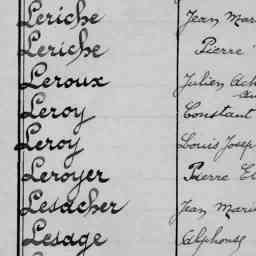 Leriche Jean Mari
Leriche Pierre
Leroux Julien Ach
Leroy Constant
Leroy Louis Josep
Leroyer Pierre
Lesacher Jean Marie
Lesage Alphonse